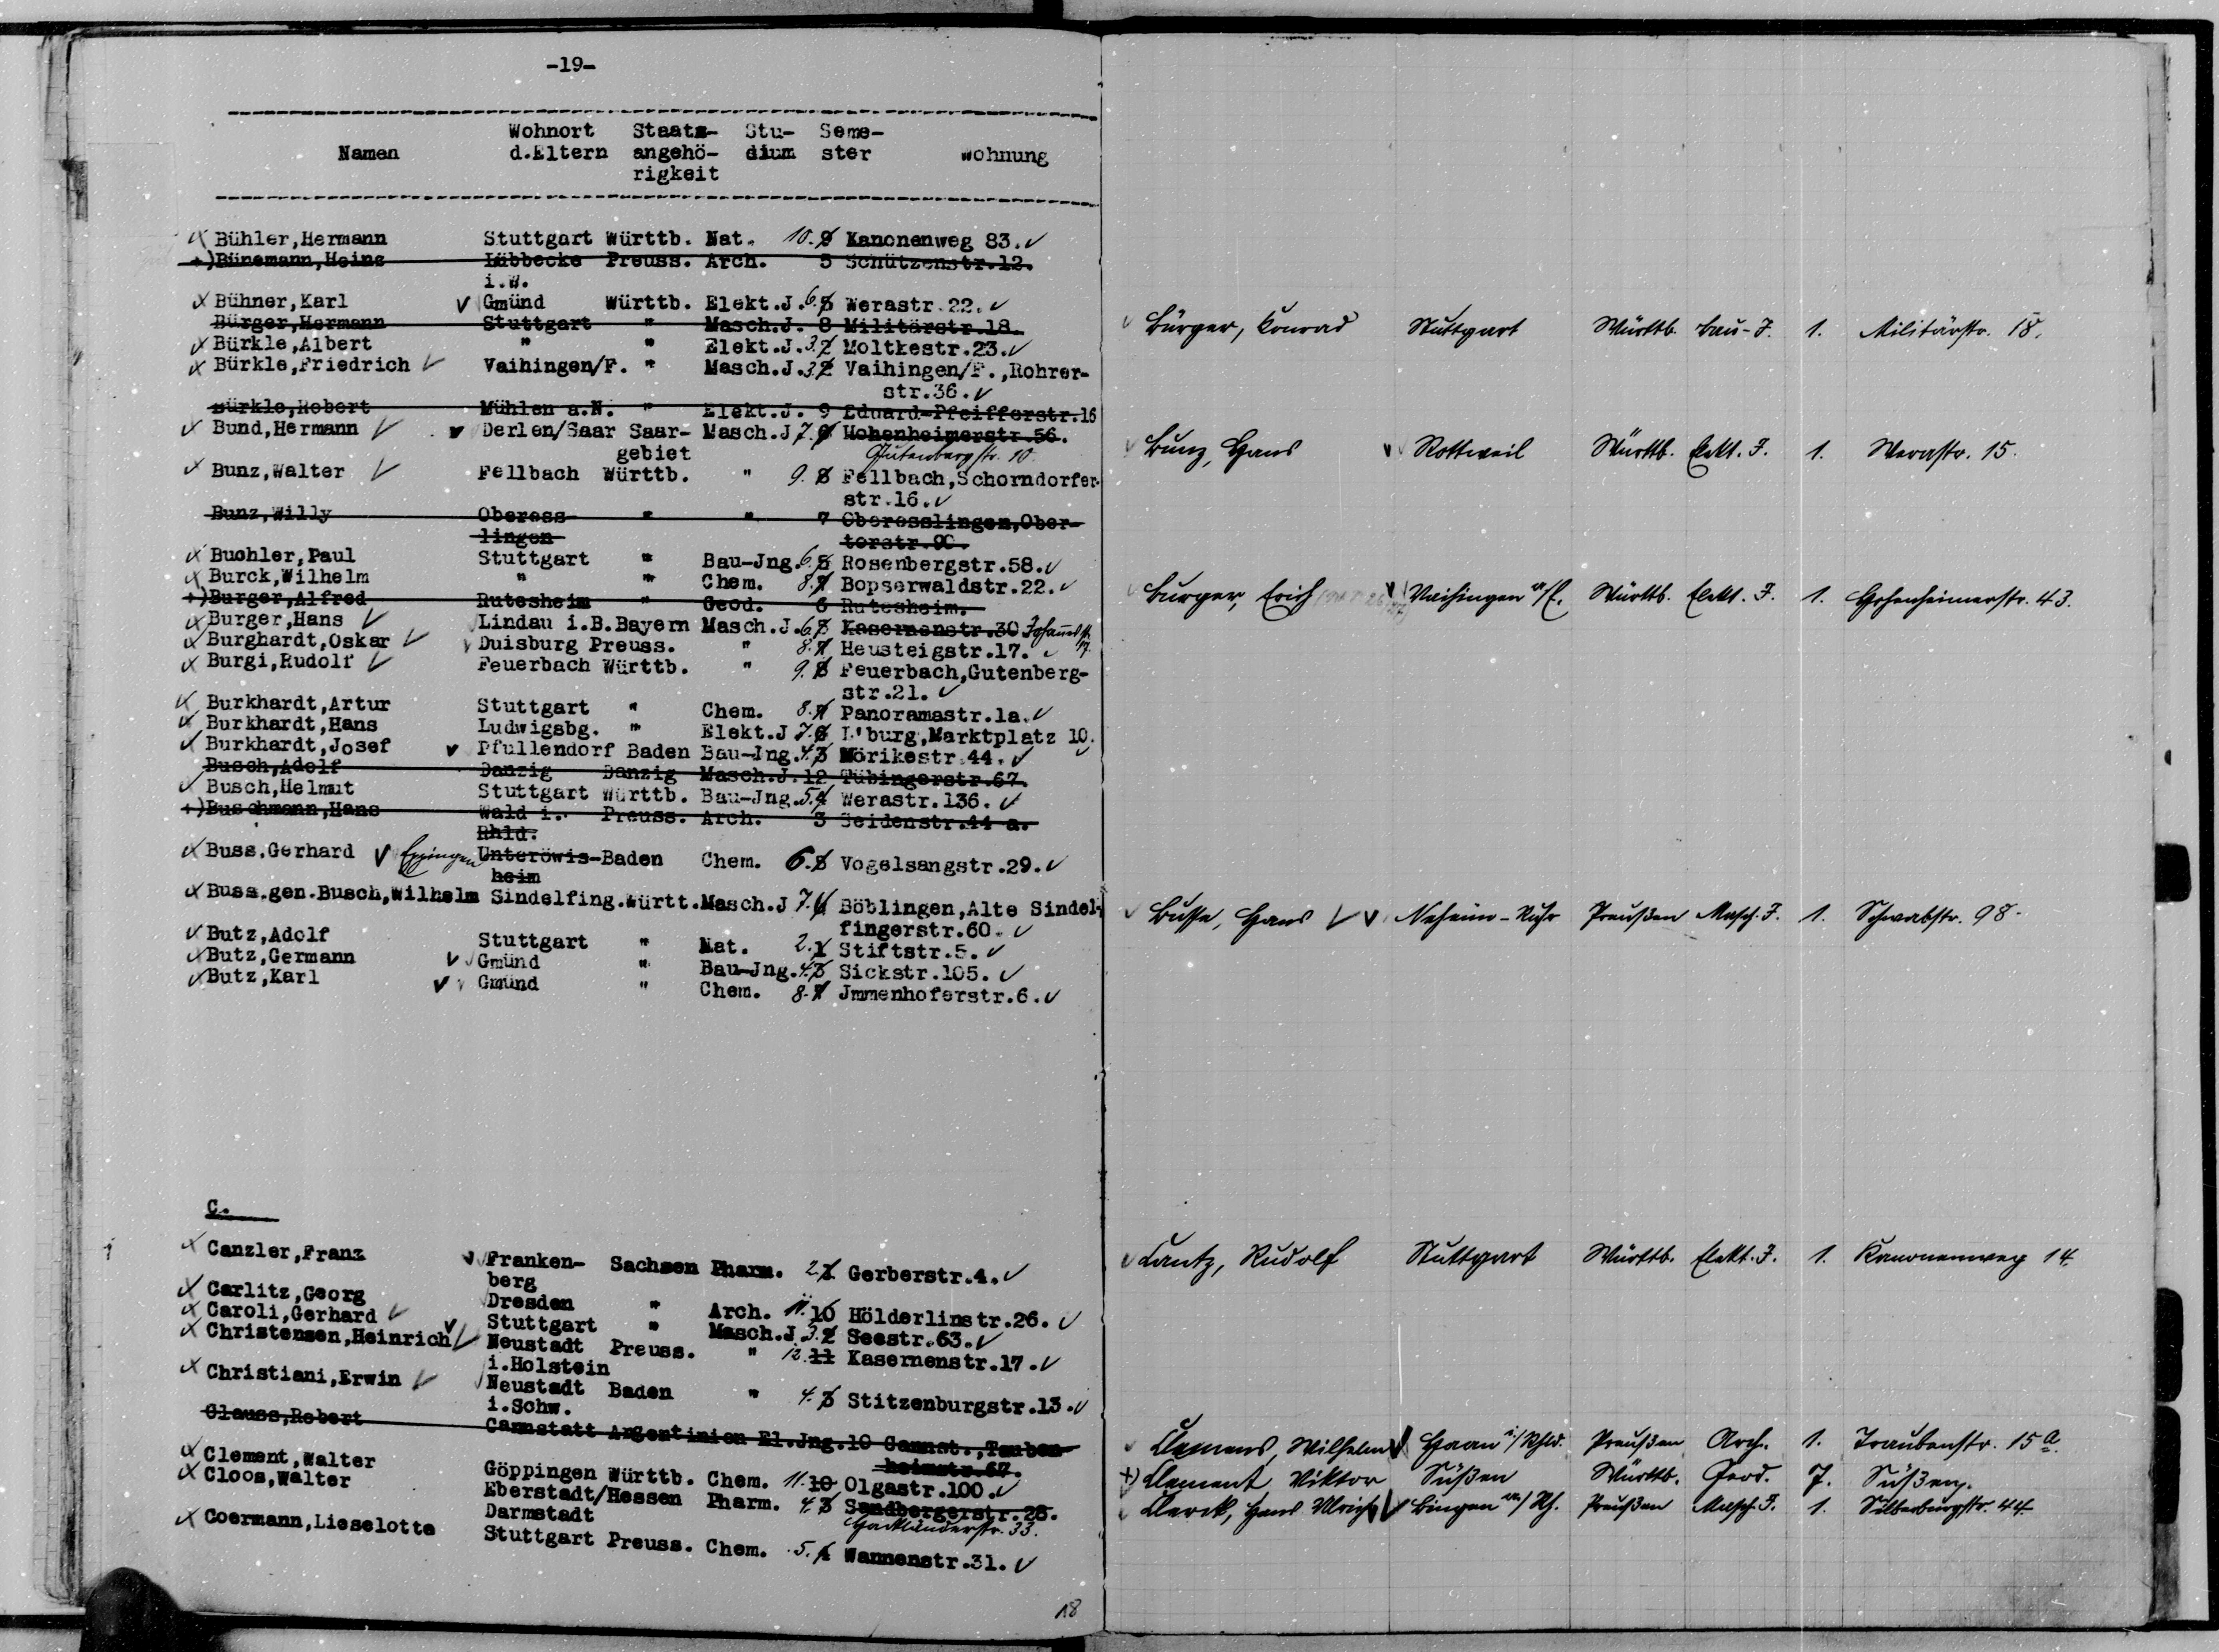 -19-
Namen Wohnort d.Eltern Staats-angehö-rigkeit Stu-dium Seme-ster Wohnung
Bühler,Hermann Stuttgart Württb. Nat. 10. 9 Kanonenweg 83.
+)Bünemann,Heinz Lübbecke Preuss. Arch. 5 Schützenstr.12.
i.W.
Bühner,Karl Gmünd Württb. Elekt.J. 6. 5 Werastr.22.
Bürger,Hermann Stuttgart " Masch.J. 8 Militärstr.18.
Bürkle,Albert " " Elekt.J. 3. 2 Moltkestr.23.
Bürkle,Friedrich Vaihingen/F. " Masch.J. 3. 2 Vaihingen/F.,Rohrer-
str.36.
Bürkle,Robert Mühlen a.N. " Elekt.J. 9 Eduard-Pfeifferstr.16
Bund,Hermann Derlen/Saar Saar- Masch.J 7. 6 Hohenheimerstr.56.
gebiet Gutenbergstr. 10.
Bunz,Walter Fellbach Württb. " 9. 8 Fellbach,Schorndorfer-
str.16.
Bunz,Willy Oberess- " " 7 Oberesslingen,Ober-
lingen torstr.90.
Buohler,Paul Stuttgart " Bau-Jng. 6. 5 Rosenbergstr.58.
Burck,Wilhelm " " Chem. 8. 7 Bopserwaldstr.22.
+)Burger,Alfred Rutesheim " Geod. 6 Rutesheim.
Burger,Hans Lindau i.B.Bayern Masch.J. 6. 5 Kasernenstr.30 Johannesstr.
Burghardt,Oskar Duisburg Preuss. " 8. 7 Heusteigstr.17.
Burgi,Rudolf Feuerbach Württb. " 9. 8 Feuerbach,Gutenberg-
str.21.
Burkhardt,Artur Stuttgart " Chem. 8. 7 Panoramastr.1a.
Burkhardt,Hans Ludwigsbg. " Elekt.J 7. 6 L'burg,Marktplatz 10.
Burkhardt,Josef Pfullendorf Baden Bau-Jng. 4. 3 Mörikestr.44.
Busch,Adolf Danzig Danzig Masch.J.12 Tübingerstr.67.
Busch,Helmut Stuttgart Württb. Bau-Jng. 5. 4 Werastr.136.
+)Buschmann,Hans Wald i. Preuss. Arch. 3 Seidenstr.44 a.
Rhld.
Buss,Gerhard Eppingen Unteröwis-Baden Chem. 6. 5 Vogelsangstr.29.
heim
Buss.gen.Busch,Wilhelm Sindelfing.Württ.Masch.J 7. 6 Böblingen,Alte Sindel-
fingerstr.60.
Butz,Adolf Stuttgart " Nat. 2. 1 Stiftstr.5.
Butz,Germann Gmünd " Bau-Jng. 4. 3 Sickstr.105.
Butz,Karl Gmünd " Chem. 8. 7 Jmmenhoferstr.6.
C.
Canzler,Franz Franken- Sachsen Pharm. 2. 1 Gerberstr.4.
berg
Carlitz,Georg Dresden " Arch. 11. 10 Hölderlinstr.26.
Caroli,Gerhard Stuttgart " Masch.J 3. 2 Seestr.63.
Christensen,Heinrich Neustadt Preuss. " 12. 11 Kasernenstr.17.
i.Holstein
Christiani,Erwin Neustadt Baden " 4. 3 Stitzenburgstr.13.
i.Schw.
Clauss,Robert Cannstatt Argentinien El.Jng.10 Cannst.,Tauben-
heimstr.67.
Clement,Walter Göppingen Württb. Chem. 11. 10 Olgastr.100.
Cloos,Walter Eberstadt/Hessen Pharm. 4. 3 Sandbergerstr.26.
Darmstadt Hackländerstr. 33.
Coermann,Lieselotte Stuttgart Preuss. Chem. 5. 4 Wannenstr.31.
18
Bürger, Konrad Stuttgart Württb. Bau-J. 1. Militärstr. 18.
Bunz, Hans Rottweil Württb. Elekt. J. 1. Werastr. 15.
Burger, Erich Vaihingen a/E. Württb. Elekt. J. 1. Hohenheimerstr. 43.
Busse, Hans Neheim-Ruhr Preußen Masch. J. 1. Schwabstr. 98.
Cantz, Rudolf Stuttgart Württb. Elekt. J. 1. Kanonenweg 14.
Clemens, Wilhelm Haan i/Rhld. Preußen Arch. 1. Traubenstr. 15 a.
+) Clement, Viktor Süßen Württb. Geod. 7. Süßen.
Clerck, Hans Ulrich Bingen a/Rh. Preußen Masch. J. 1. Silberburgstr. 44.